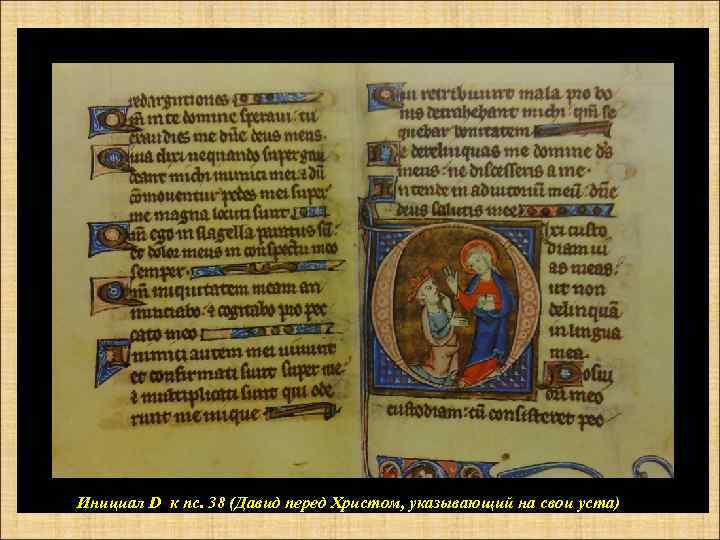 redargutiones
Qm in te domine speravi: tu
exaudies me dne deus meus.
Quia dixi nequando supergau
deant michi inimici mei: & du
comoventur pedes mei super
me magna locuti sunt
Qm ego in flagella paratus su:
et dolor meus in conspectu meo
semper.
Qm iniquitatem meam an
nunciabo: & cogitabo pro pec
cato meo
Inimici autem mei vivunt
et confirmati sunt super me:
& multiplicati sunt qui ode
runt me inique
Qui retribuunt mala pro bo
nis detrahebant michi: qm se
quebar bonitatem
Ne derelinquas me domine ds
meus: ne discesseris a me.
Intende in adiutoriu meu: dne
deus salutis mee
Dixi custo
diam vi
as meas:
ut non
delinqua
in lingua
mea.
Posui
ori meo
custodiam: cu consisteret pec
Инициал D к пс. 38 (Давид перед Христом, указывающий на свои уста)